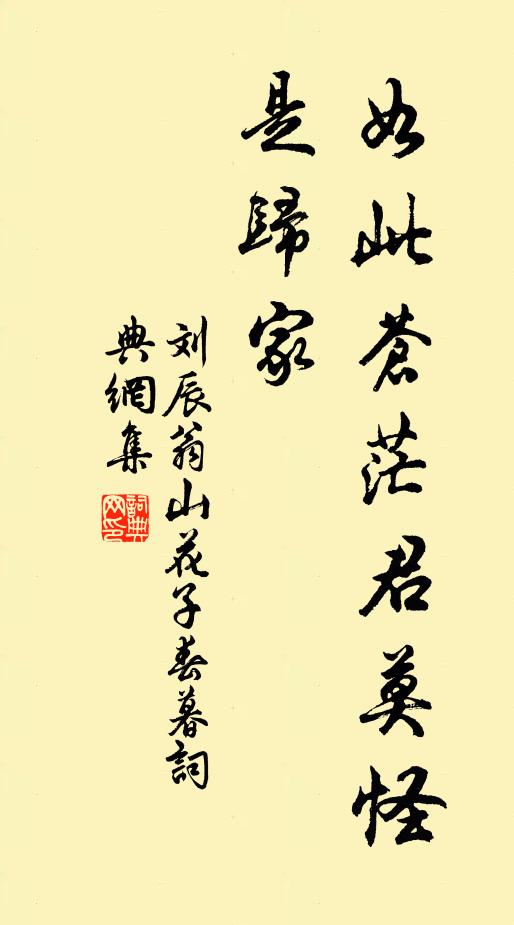 如此蒼茫君莫怪
是歸家
刘辰翁山花子春暮詞
典網集
詞典网印